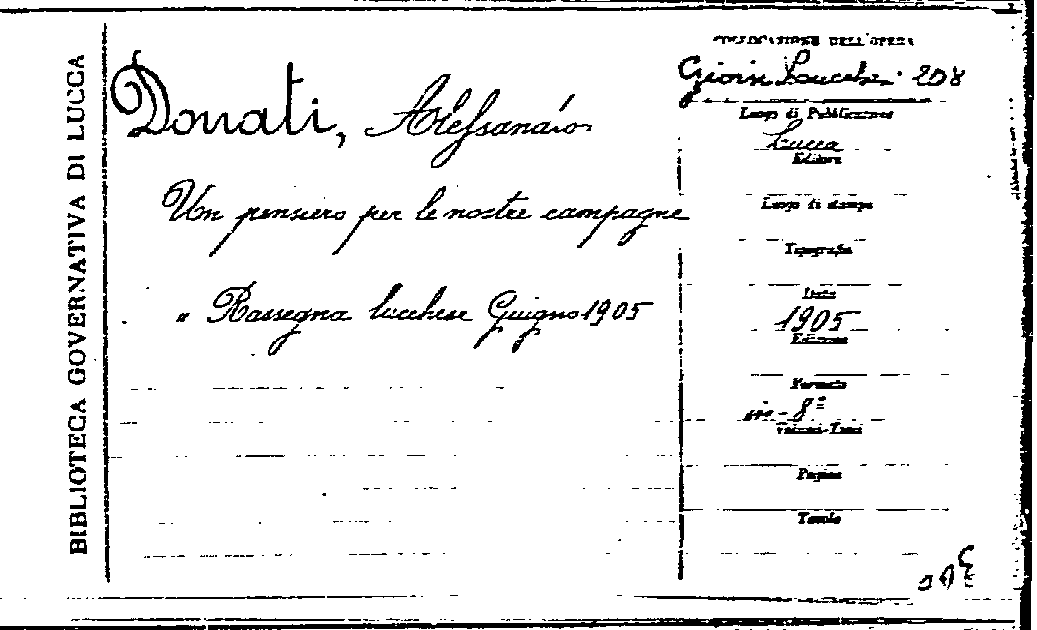 BIBLIOTECA GOVERNATIVA DI LUCCA
Donati, Alessandro
Un pensiero per le nostre campagne
" Rassegna lucchese Giugno 1905
COLLOCAZIONE DELL'OPERA
208
Luogo di Pubblicazione
Lucca
Editore
Luogo di stampa
Tipografia
Data
1905
Edizione
Formato
in-8º
Volumi-Tomi
Pagine
Tavole